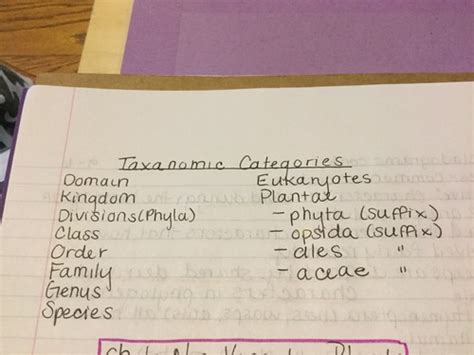 Taxanomic Categories
Domain Eukaryotes
Kingdom Plantae
Divisions (Phyla) -phyta (suffix)
Class - opsida (suffix)
Order - ales "
Family - aceae "
Genus
Species